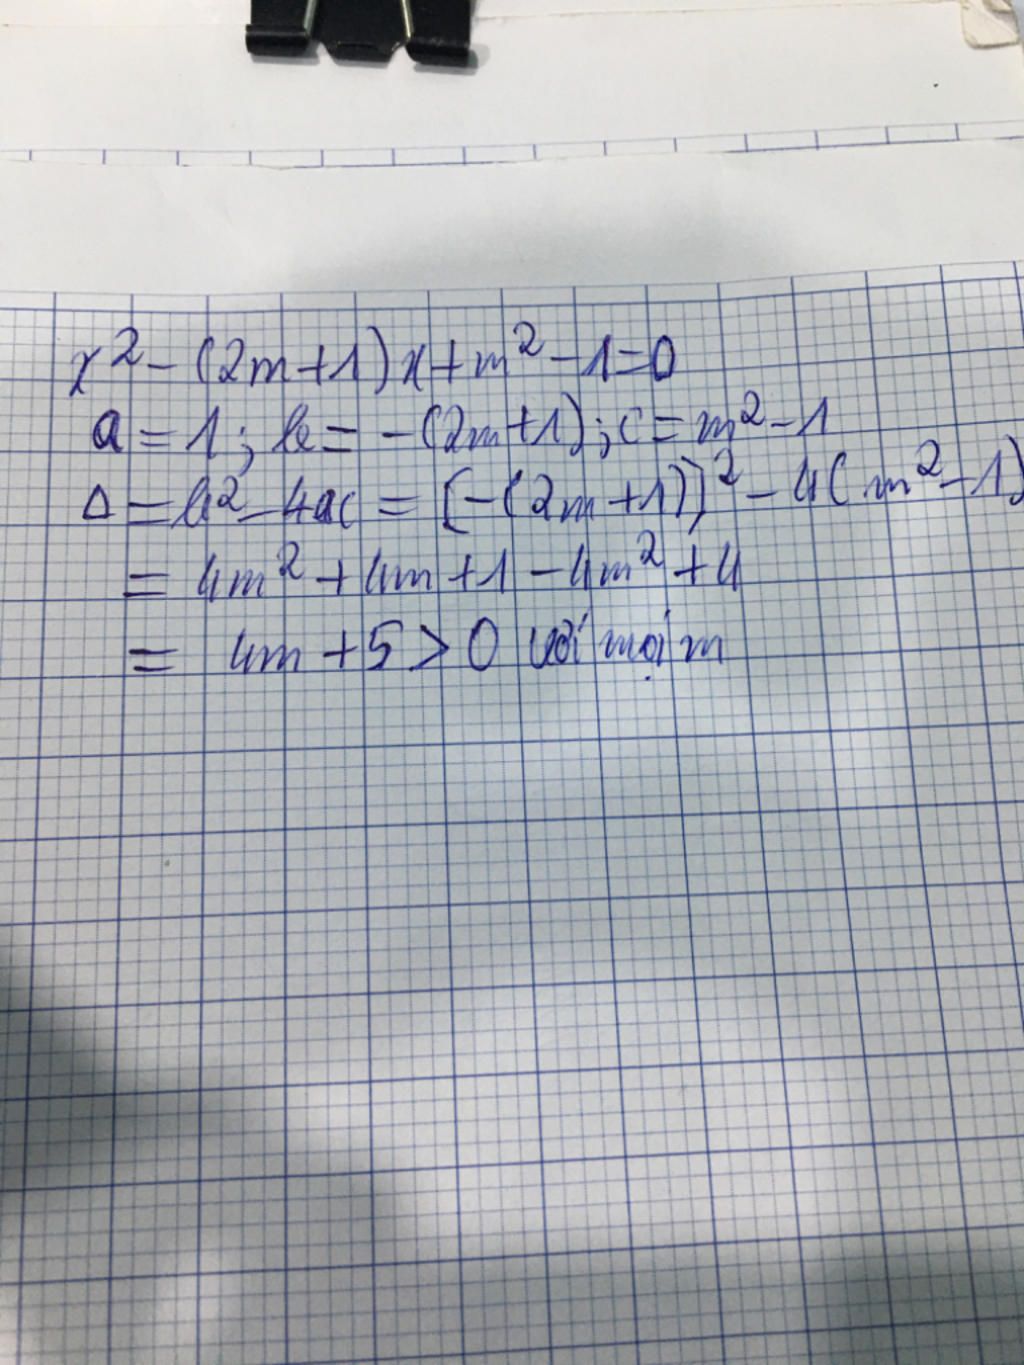 x² - (2m+1)x + m² - 1 = 0
a = 1; b = -(2m+1); c = m² - 1
Δ = b² - 4ac = [-(2m+1)]² - 4(m² - 1)
= 4m² + 4m + 1 - 4m² + 4
= 4m + 5 > 0 với mọi m